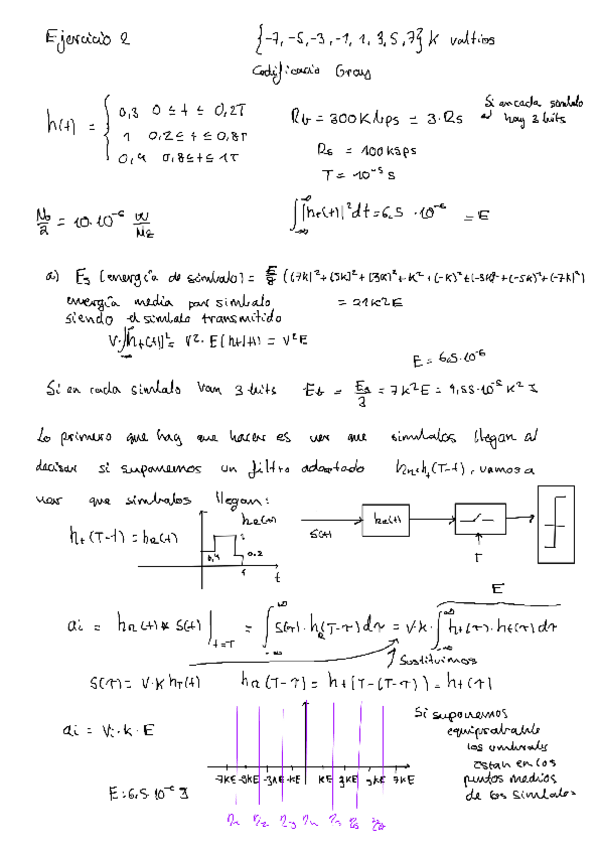 Ejercicio 2
{-7, -5, -3, -1, 1, 3, 5, 7} k voltios
Codificacio Gray
h(t) = { 0,3 0 ≤ t ≤ 0,2T
1 0,2 ≤ t ≤ 0,8T
0,4 0,8 ≤ t ≤ 1T
Rb = 300 Kbps = 3·Rs
Si en cada simbolo
hay 3 bits
Rs = 100 ksps
T = 10^-5 s
N0/2 = 10·10^-6 W/Hz
∫|ht(t)|² dt = 6,5 · 10^-6 = E
a) Es [energía de simbolo] = E/8 ((7k)² + (5k)² + (3k)² + k² + (-k)² + (-3k)² + (-5k)² + (-7k)²)
energía media por simbolo = 21k²E
siendo el simbolo transmitido
= V² · E(ht(t)) = V²E
E = 6,5·10^-6
Si en cada simbolo van 3 bits Eb = Es/3 = 7k²E = 4,55·10^-5 k² J
Lo primero que hay que hacer es ver que simbolos llegan al
decisor si suponemos un filtro adaptado ht(T-t), vamos a
ver que simbolos llegan:
ht(T-t) = hr(t)
hr(t)
0,4
t
S(t)
hr(t)
T
E
ai = hr(t) * s(t) |t=T = ∫ s(τ) · hr(T-τ) dτ = V·k · ∫ ht(τ) · ht(τ) dτ
Sustituimos
s(τ) = V·k ht(t) hr(T-τ) = ht(T-(T-τ)) = ht(τ)
ai = Vi · k · E
Si suponemos
equiprobable
los umbrales
estan en los
puntos medios
de los simbolos
-7kE -5kE -3kE -kE kE 3kE 5kE 7kE
E = 6,5·10^-6 J